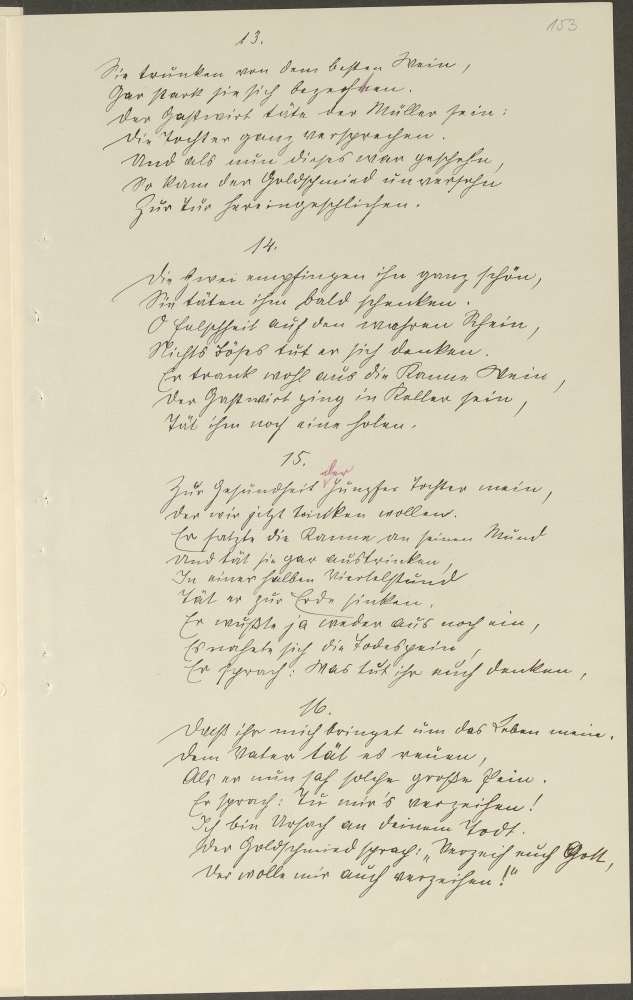 153
13.
Sie trunken von dem besten Wein,
Gar stark sie sich bezechten.
Der Gastwirt täte der Müller sein:
Die Tochter ganz versprechen.
Und als nun dieses war geschehn,
So kam der Goldschmied unversehn
Zur Tür hereingeschlichen.
14.
Die zwei empfingen ihn ganz schön,
Sie täten ihm bald schenken.
O Falschheit auf den wahren Schein,
Nichts Böses tut er sich denken.
Er trank wohl aus die Kanne Wein,
Der Gastwirt ging in Keller sein,
Tät ihm noch eine holen.
15.
Zur Gesundheit der Jungfer Tochter mein,
Der wir jetzt trinken wollen.
Er satzte die Kanne an seinen Mund
Und tät sie gar austrinken,
In einer halben Viertelstund
Tät er zur Erde sinken.
Er wußte ja weder aus noch ein,
Es nahete sich die Todespein,
Er sprach: Was tut ihr euch denken,
16.
Daß ihr mich bringet um das Leben mein.
Dem Vater tät es reuen,
Als er nun sah solche große Pein.
Er sprach: Tu mir's verzeihen!
Ich bin Ursach an deinem Todt.
Der Goldschmied sprach: „Verzeih euch Gott,
Der wolle mir auch verzeihen!"